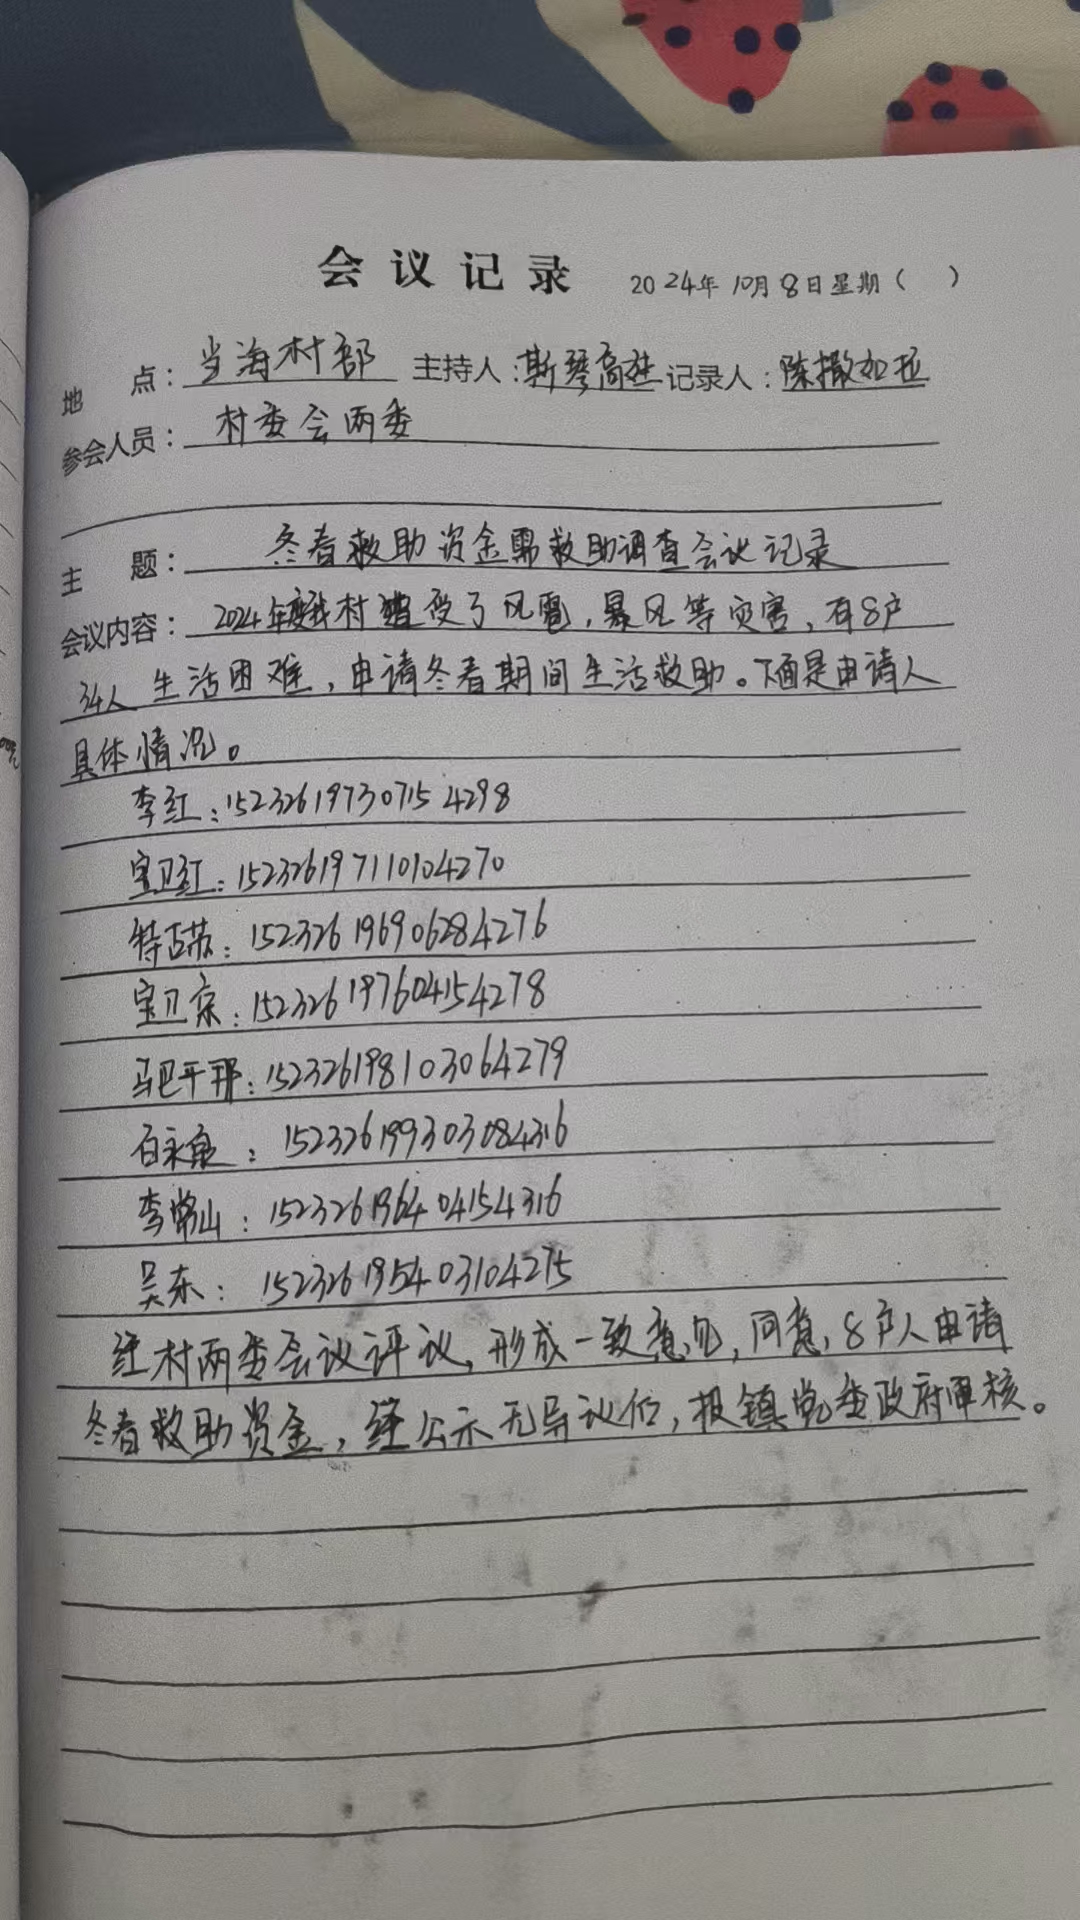 会议记录 2024年10月8日星期（ ）
地 点：当海村部 主持人：斯琴高娃 记录人：陈撒如拉
参会人员：村委会两委
主 题：冬春救助资金需救助调查会议记录
会议内容：2024年度我村遭受了风雹，暴风等灾害，有8户
34人 生活困难，申请冬春期间生活救助。下面是申请人
具体情况。
李红：152326197307154298
宝卫红：152326197110104270
特古苏：152326196906284276
宝卫京：152326197604154278
马巴干那：152326198103064279
白永泉：152326199303084316
李常山：152326196404154316
吴东：152326195403104275
经村两委会议评议，形成一致意见，同意，8户人申请
冬春救助资金，经公示无异议后，报镇党委政府审核。